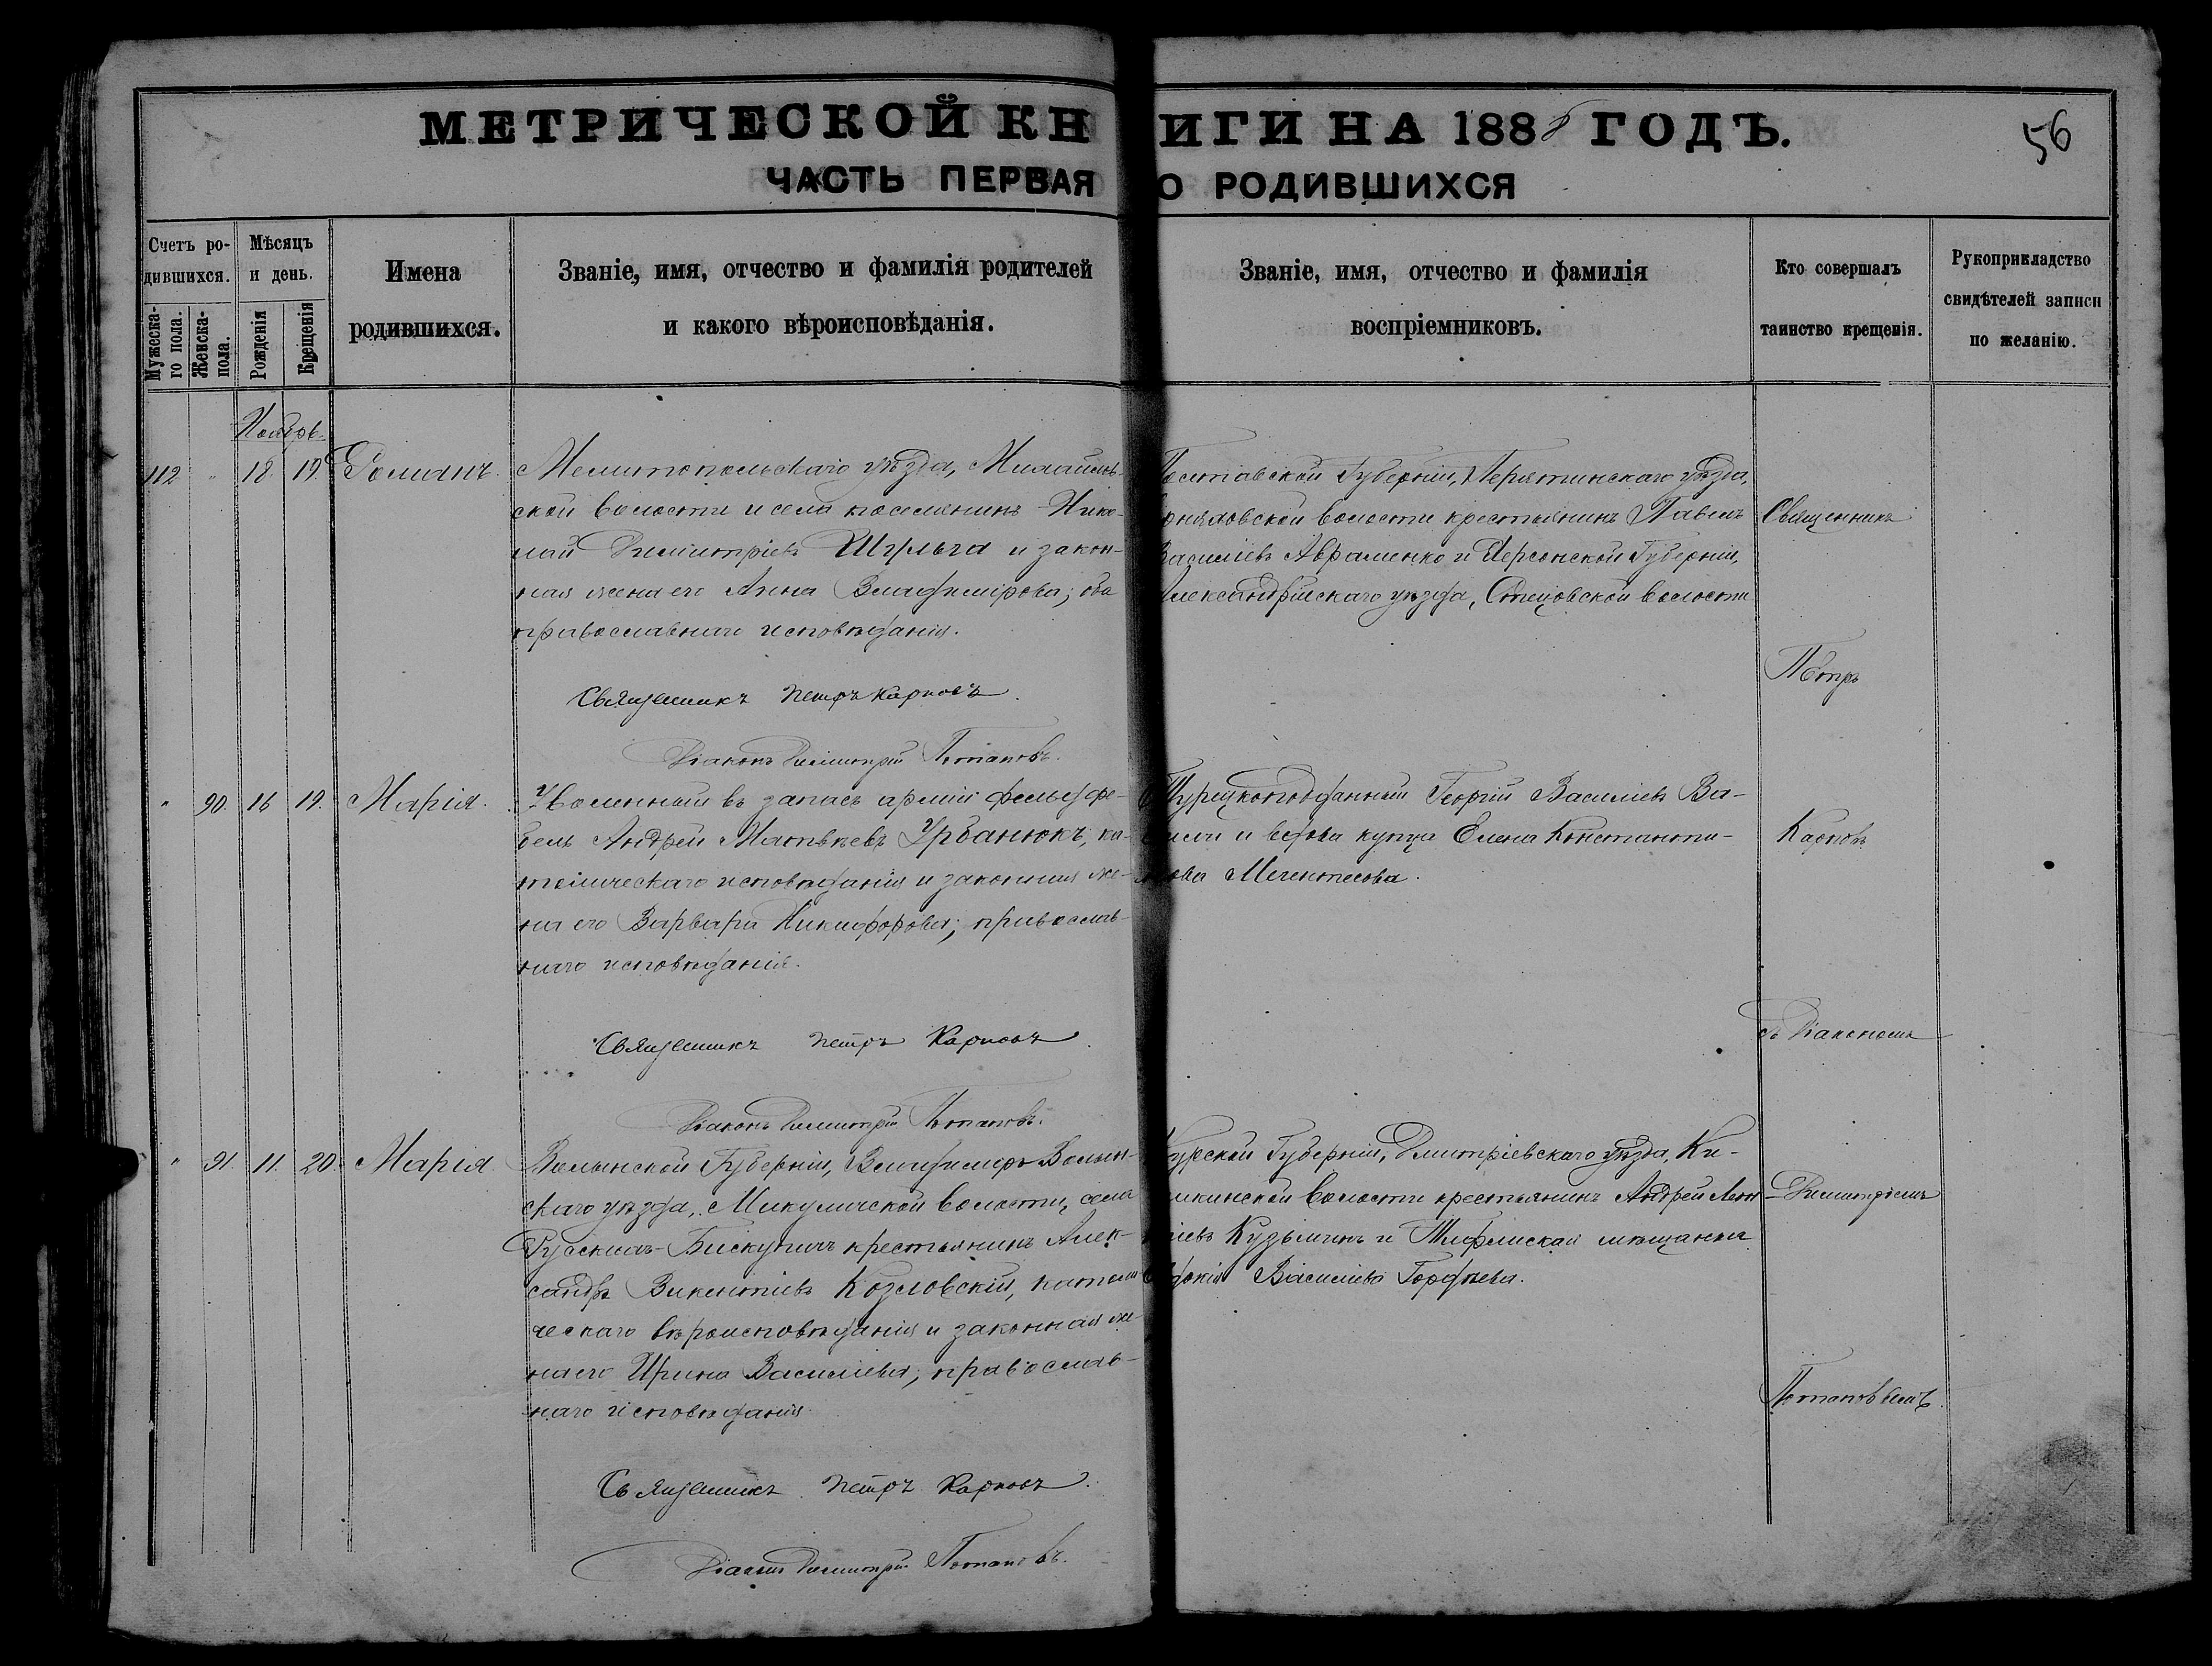 МЕТРИЧЕСКОЙ КНИГИ НА 1888 ГОДЪ.
56
ЧАСТЬ ПЕРВАЯ О РОДИВШИХСЯ
Счетъ родившихся.
Мужескаго пола.
Женска- пола.
Мѣсяцъ и день.
Рожденія
Крещенія
Имена родившихся.
Званіе, имя, отчество и фамилія родителей
и какого вѣроисповѣданія.
Званіе, имя, отчество и фамилія
воспріемниковъ.
Кто совершалъ
таинство крещенія.
Рукоприкладство
свидѣтелей записи
по желанію.
Ноябрь
112 " 18. 19. Романъ.
Мелитопольскаго уѣзда, Михайлов-
ской волости и села поселянинъ Нико-
лай Димитріевъ Шульга и закон-
ная жена его Анна Владимірова; оба
православнаго исповѣданія.
Священникъ Петръ Карповъ.
Діаконъ Димитрій Потаповъ.
Полтавской Губерніи, Пирятинскаго уѣзда,
волости крестьянинъ Павелъ
Василіевъ Авраменко и Херсонской Губерніи,
Александрійскаго уѣзда, волости
" 90. 16 19. Марія.
Уволенный въ запасъ арміи фельдфе-
бель Андрей Матвѣевъ Урбанюкъ, ка-
толическаго исповѣданія и законная же-
на его Варвара Никифорова; православ-
наго исповѣданія.
Священникъ Петръ Карповъ.
Діаконъ Димитрій Потаповъ.
Турецкоподданный Георгій Василіевъ Ва-
и вдова купца Елена Константи-
нова
" 91. 11. 20. Марія
Волынской Губерніи, Владиміръ-Волын-
скаго уѣзда, Микуличской волости, села
Русскихъ-Бискупичъ крестьянинъ Алек-
сандръ Викентіевъ Козловскій, католи-
ческаго вѣроисповѣданія и законная же-
на его Ирина Василіева; православ-
наго исповѣданія.
Священникъ Петръ Карповъ.
Діаконъ Димитрій Потаповъ.
Курской Губерніи, Дмитріевскаго уѣзда,
волости крестьянинъ Андрей
Кузьминъ и Тифлиская мѣщанка
Евдокія Василіева Гордѣева.
Священникъ
Петръ
Карповъ
съ Діакономъ
Димитріемъ
Потаповымъ.